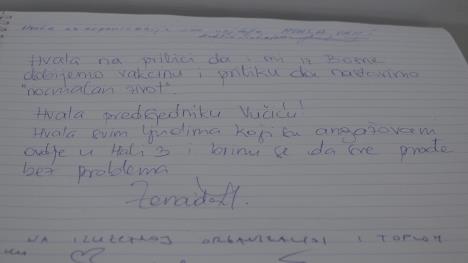 Hvala na prilici da i mi iz Bosne
dobijemo vakcinu i priliku da nastavimo
"normalan život".
Hvala predsjedniku Vučiću!
Hvala svim ljudima koji su angažovani
ovdje u Hali 3 i brinu se da sve prođe
bez problema
NA IZUZETNOJ ORGANIZACIJI I TOPLOM